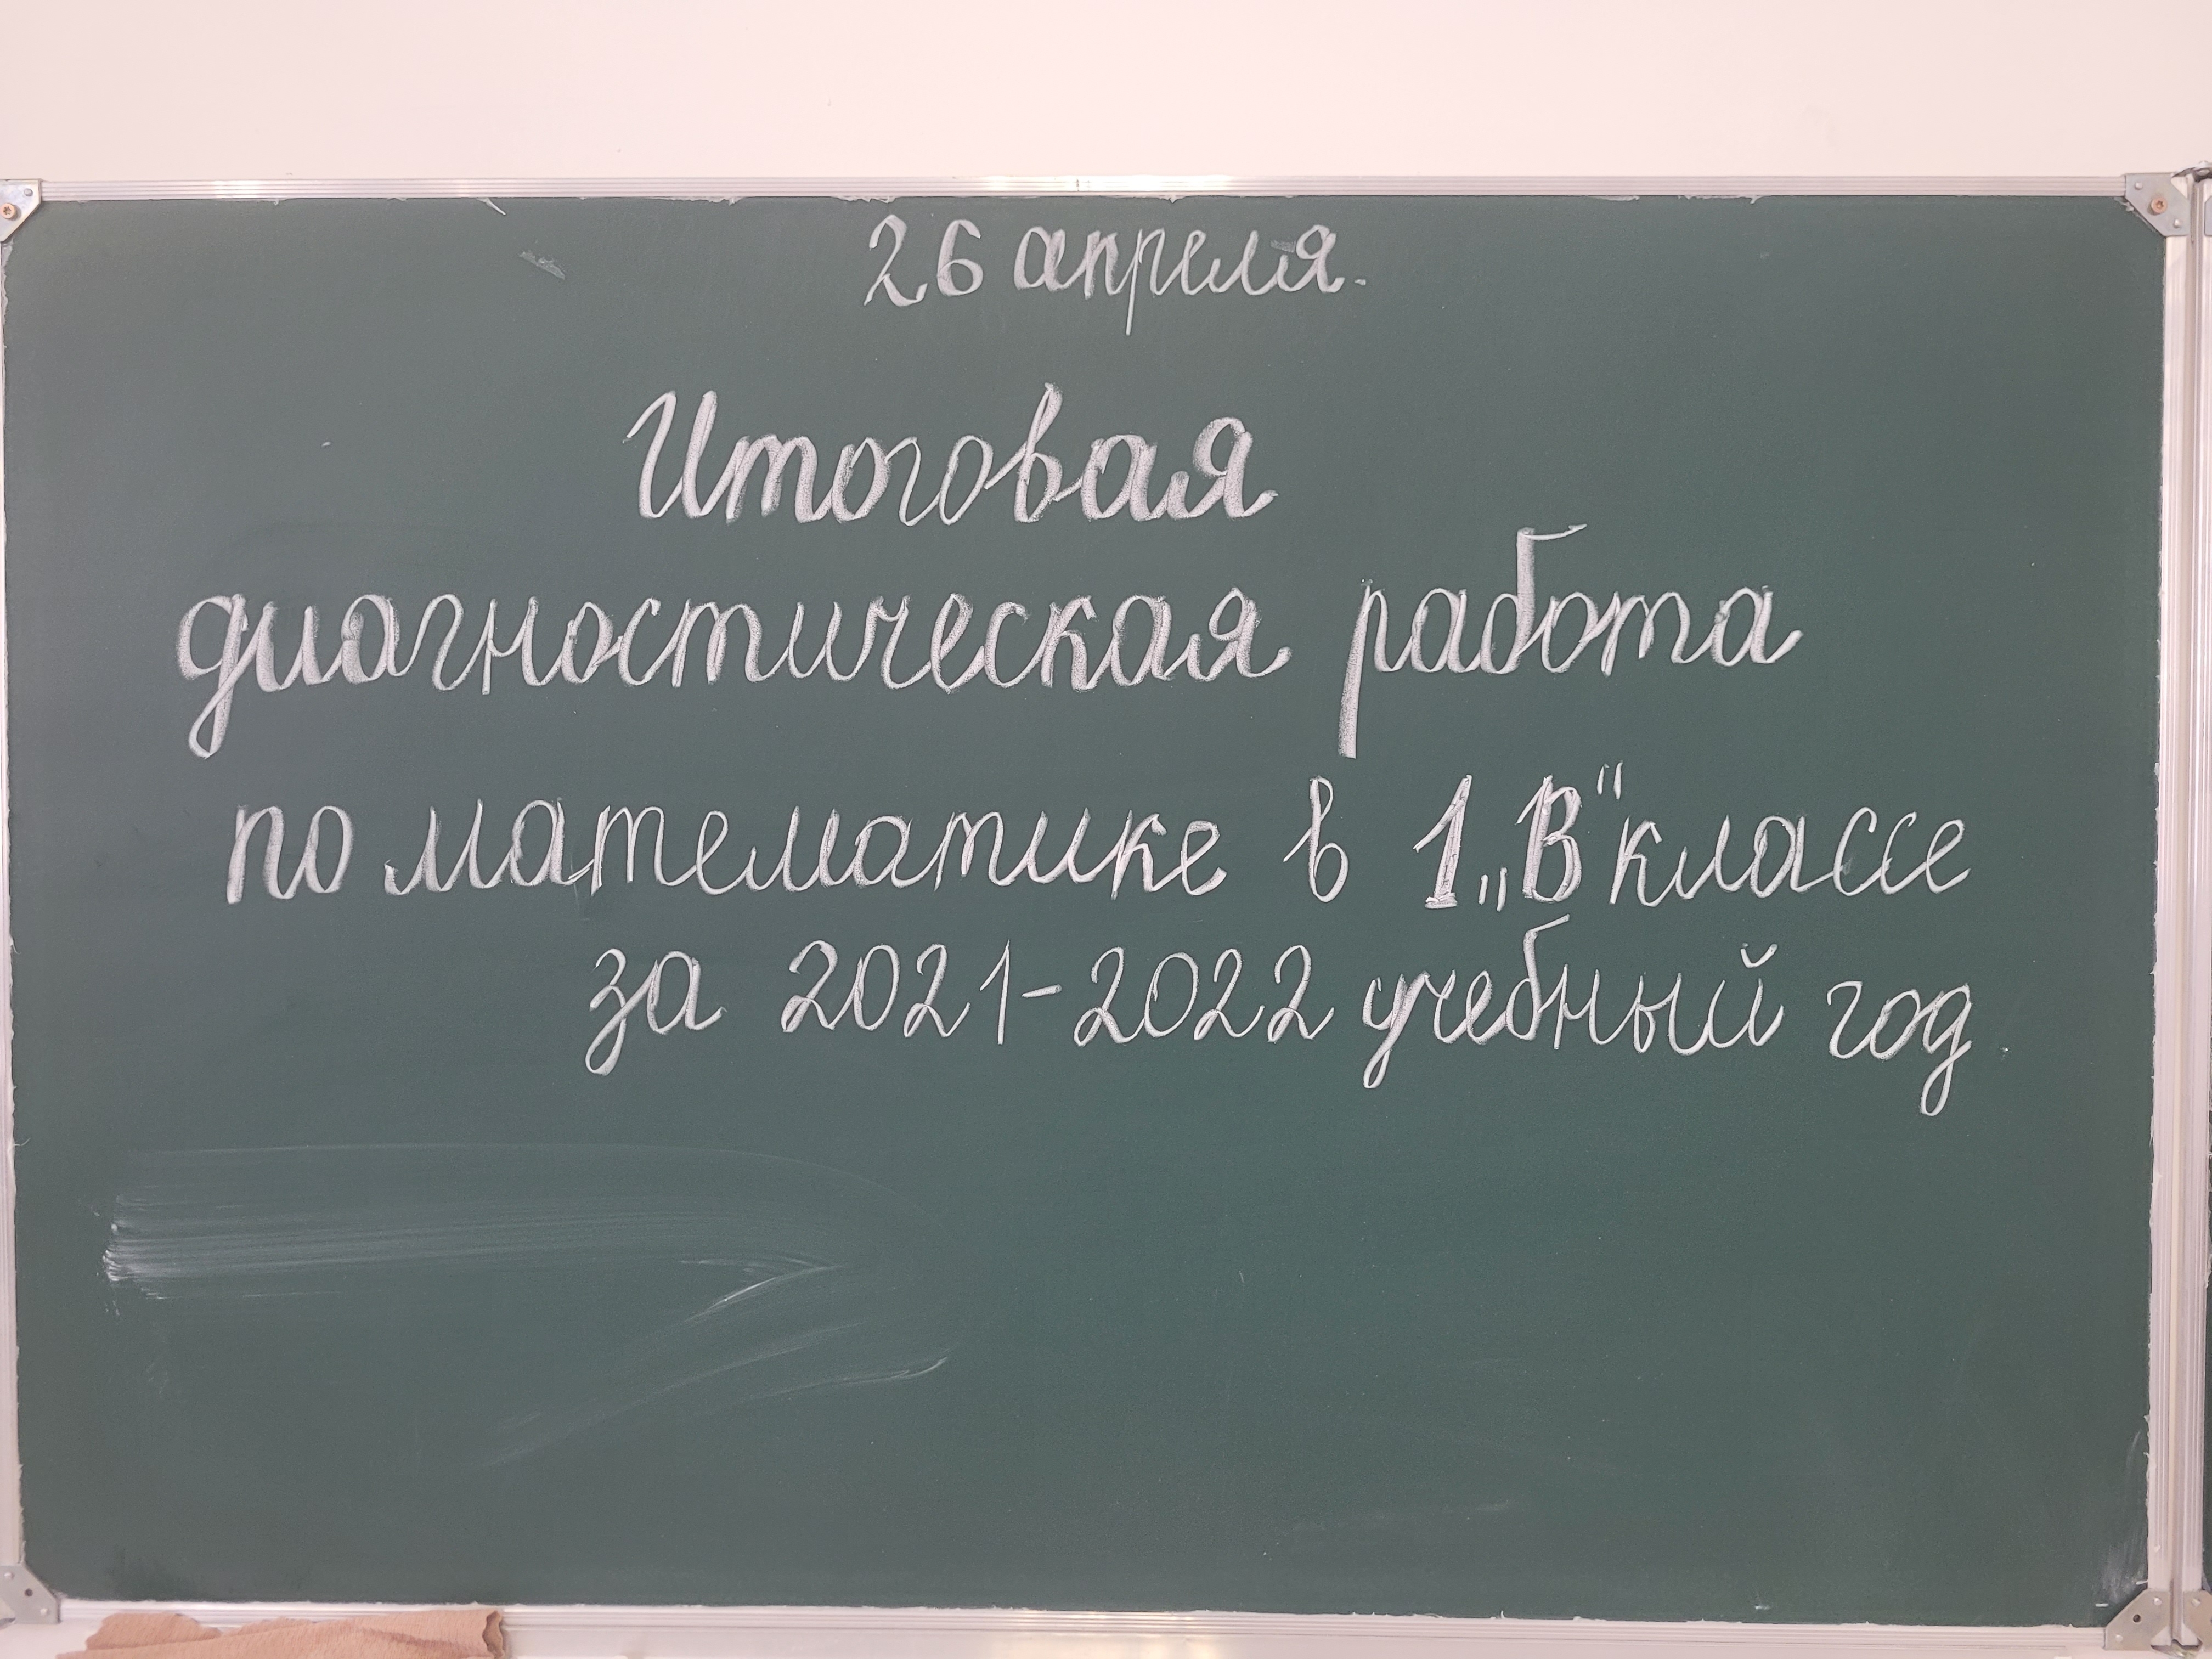 26 апреля.
Итоговая
диагностическая работа
по математике в 1 „В“ классе
за 2021-2022 учебный год